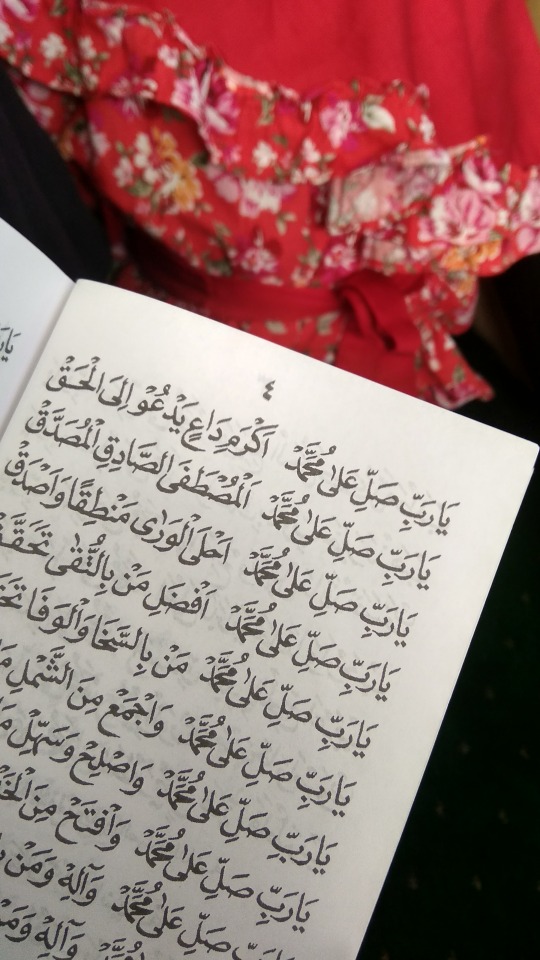 ٤
يَارَبِّ صَلِّ عَلىٰ مُحَمَّدْ اَكْرَمِ دَاعٍ يَدْعُوْ اِلَى الْحَقْ
يَارَبِّ صَلِّ عَلىٰ مُحَمَّدْ اَلْمُصْطَفَى الصَّادِقِ الْمُصَدَّقْ
يَارَبِّ صَلِّ عَلىٰ مُحَمَّدْ اَحْلَى الْوَرٰى مَنْطِقًا وَاَصْدَقْ
يَارَبِّ صَلِّ عَلىٰ مُحَمَّدْ اَفْضَلِ مَنْ بِالتُّقٰى
يَارَبِّ صَلِّ عَلىٰ مُحَمَّدْ مَنْ بِالسَّخَا وَالْوَفَا
يَارَبِّ صَلِّ عَلىٰ مُحَمَّدْ وَاجْمَعْ مِنَ الشَّمْلِ
يَارَبِّ صَلِّ عَلىٰ مُحَمَّدْ وَاصْلِحْ وَسَهِّلْ
يَارَبِّ صَلِّ عَلىٰ مُحَمَّدْ وَافْتَحْ مِنَ
يَارَبِّ صَلِّ عَلىٰ مُحَمَّدْ وَآلِهْ وَمَنْ
وَآلِهْ